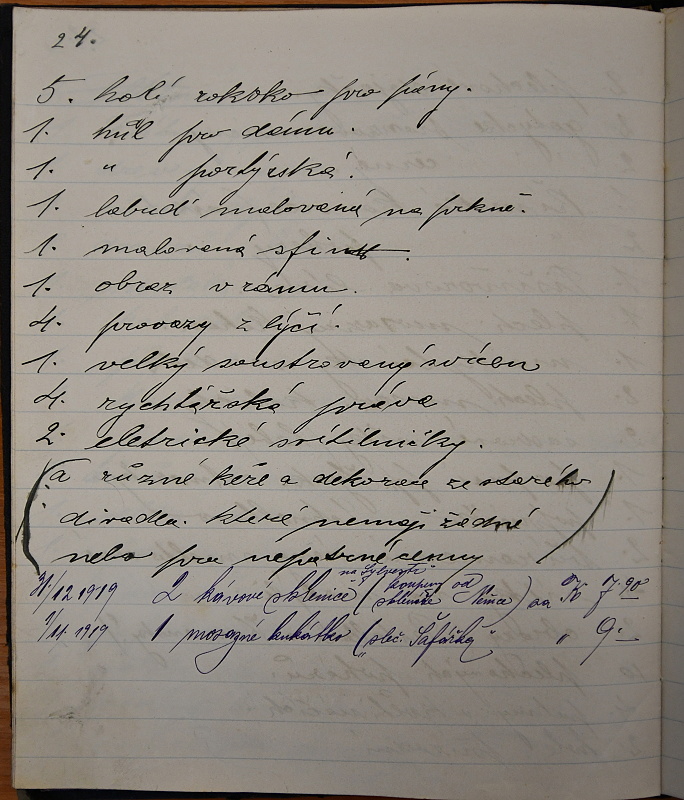 24.
5. holí rokoko pro pány.
1. hůl pro dámu.
1. " portýrská.
1. labuď malovaná na prkně.
1. malovaná sfinx.
1. obraz v rámu.
4. provazy z lýčí.
1. velký soustrovaný svícen
4. rychtářská práva
2. eletrické svítilničky.
(a různé keře a dekorace ze starého
divadla. které nemají žádné
nebo pra nepatrné cenny
na Sylvestr
31/12 1919 2 kávové sklenice (koupeny od sklenáře Němce) za K 7.90
1/11. 1919 1 mosazné kukátko (sleč. Šafářky " 9.-